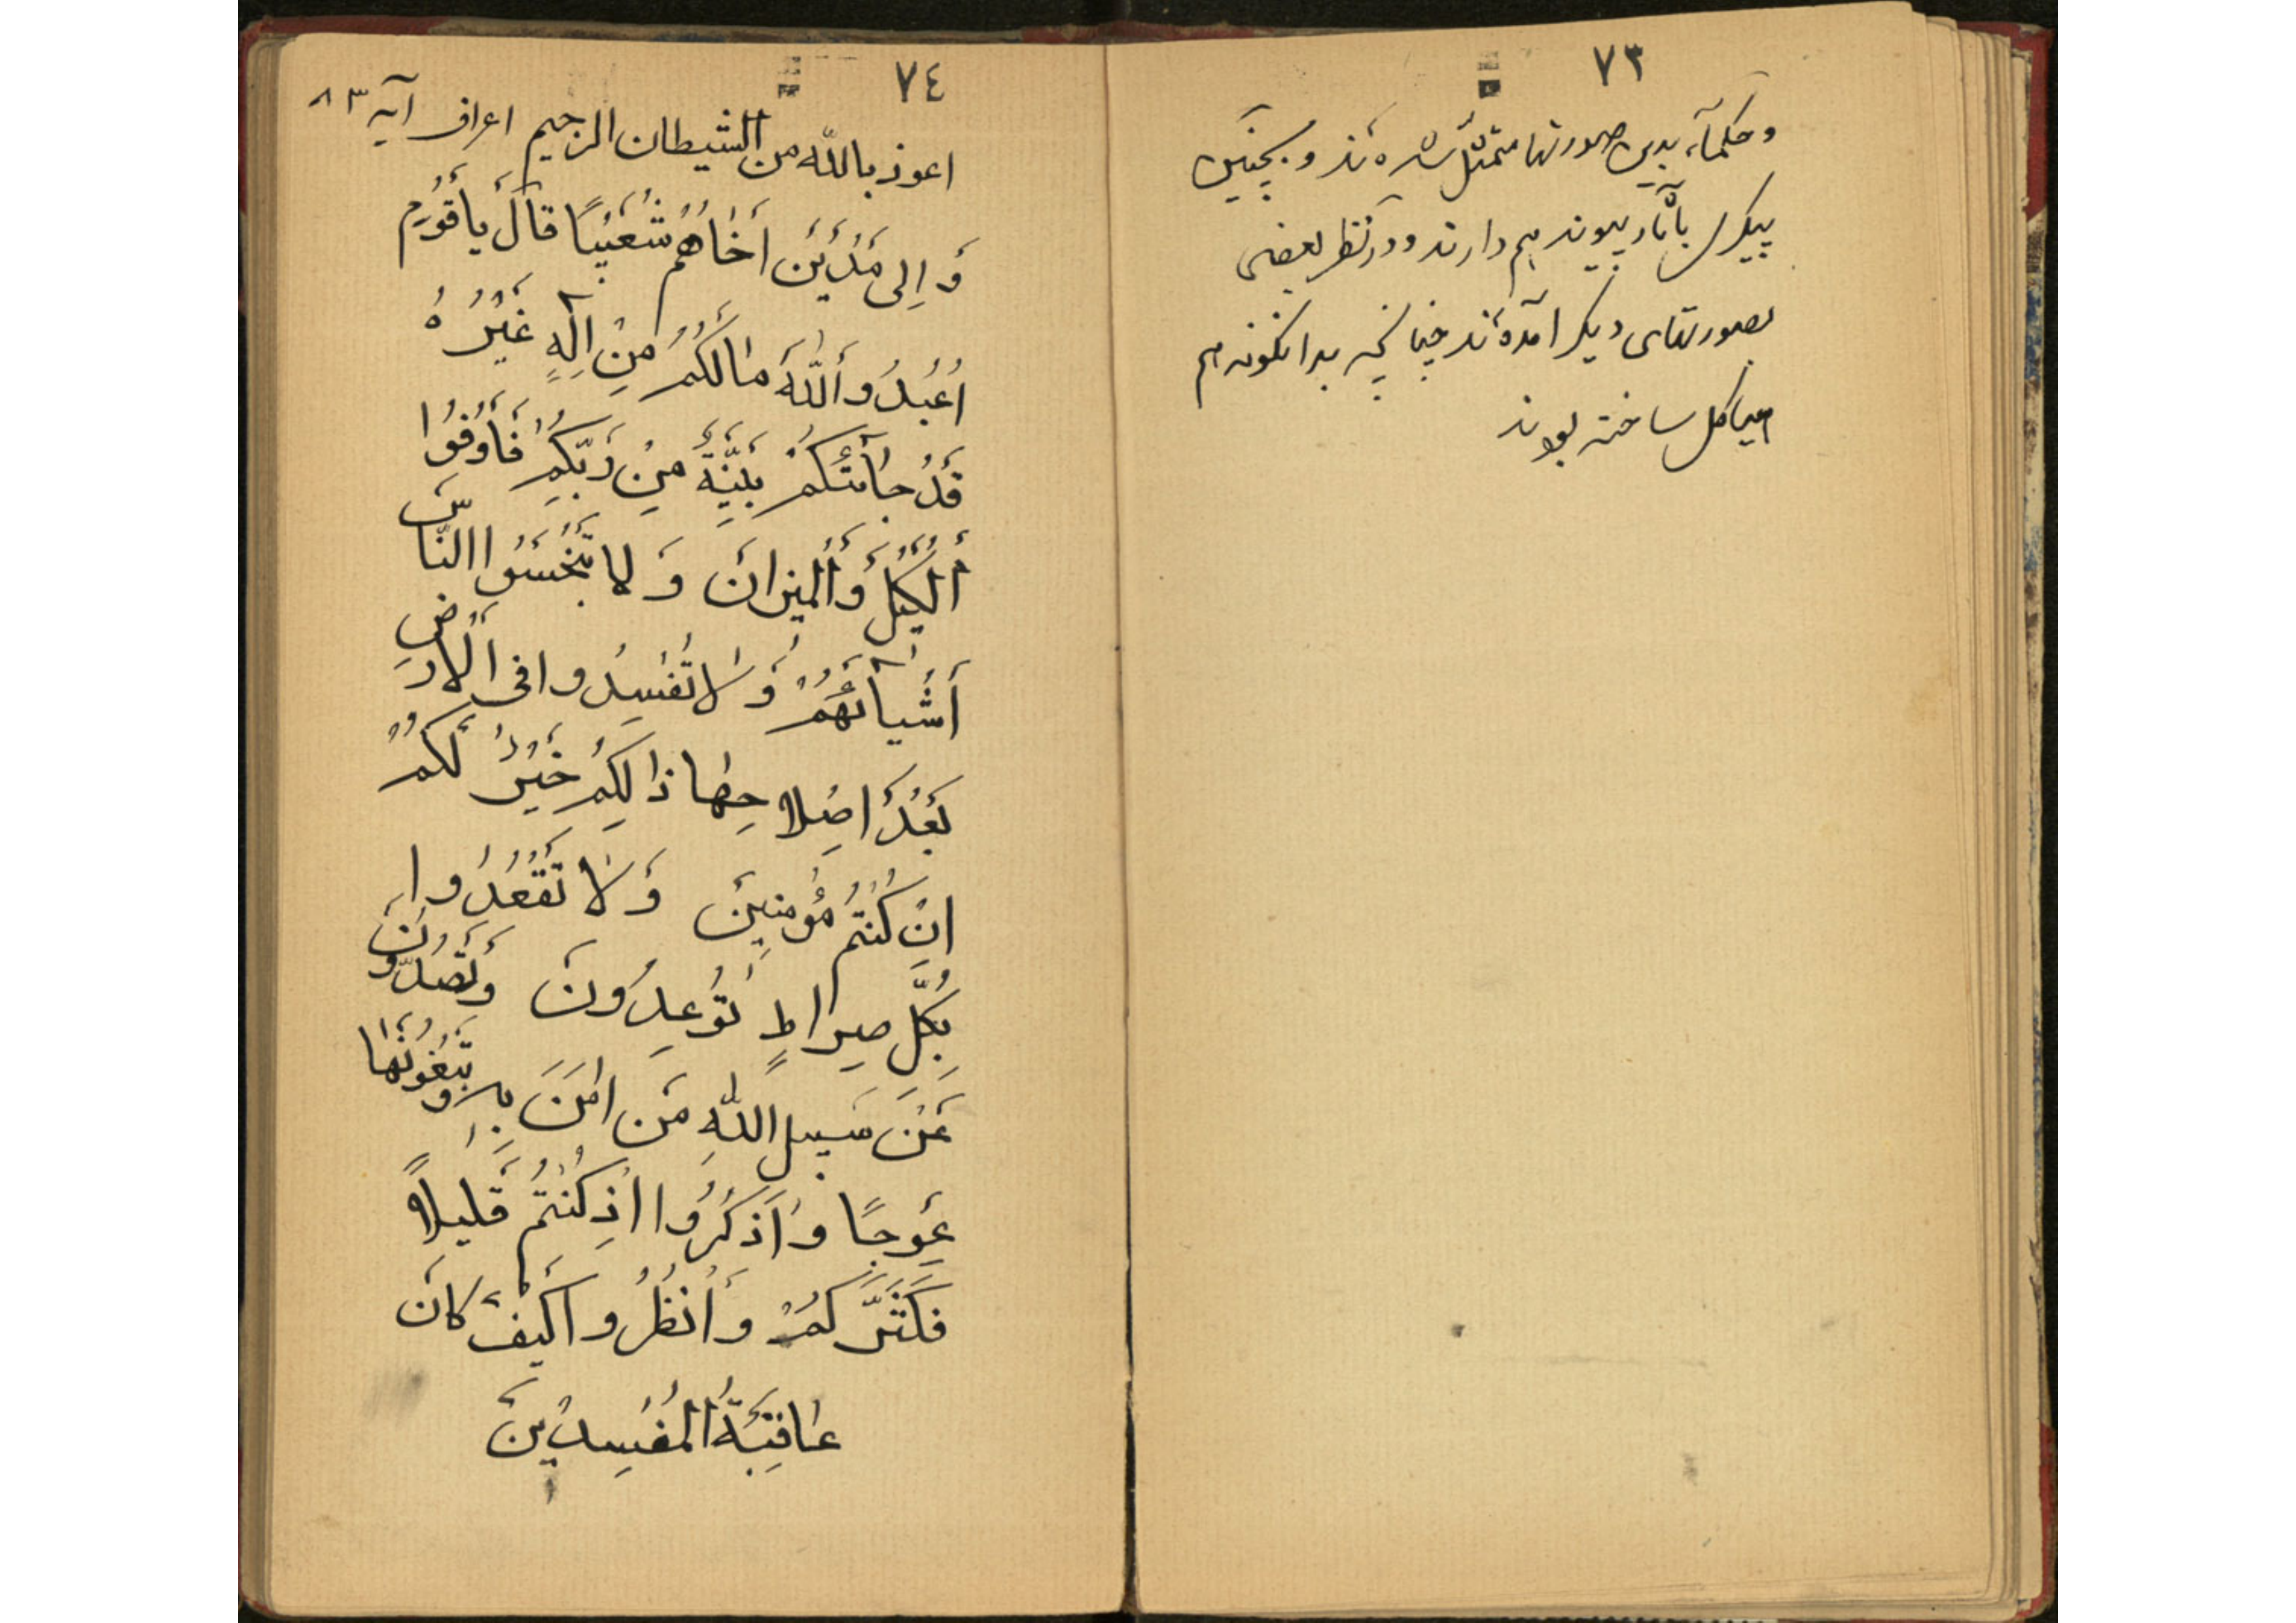 ٧٣
و حکمآء بدین صورتها متمثّل شده‌اند و همچنین
پیکرش بآثار پیوند هم دارند و در نظر بعضی
بصورتهای دیگر آمده‌اند چنانچه بدانگونه هم
هیاکل ساخته بودند
٧٤
اعوذ بالله من الشیطان الرجیم اعراف آیه ٨٣
وَ اِلی مَدْیَنَ اَخٰاهُمْ شُعَیْبًا قٰالَ یٰأقَوْمِ
اُعْبُدُوأَللّٰهَ مٰالَکُمْ مِنْ اِلٰهٍ غَیْرُهُ
قَدْ جٰآئَتْکُمْ بَیِّنَةٌ مِنْ رَبِّکُمْ فَأَوْفُوا
أَلْکَیْلَ وَأَلْمیزانَ وَ لا تَبْخَسُوا النّٰاسَ
أَشْیٰآئَهُمْ وَ لاٰ تُفْسِدُوا فی اْلاَرْضِ
بَعْدَ اِصْلاحِهٰا ذالِکُمْ خَیْرٌ لَکُمْ
اِنْ کُنْتُمْ مُؤْمِنینَ وَ لاٰ تَقْعُدُوا
بِکُلِّ صِراطٍ تُوْعِدُونَ وَ تَصُدُّونَ
عَنْ سَبیلِ اللّٰهِ مَنْ امَنَ بِهِ وَ تَبْغُونَهٰا
عِوَجًا وَ اَذْکُرُوا اِذْ کُنْتُمْ قَلیلاً
فَکَثَّرَکُمْ وَ اُنْظُرُوا کَیْفَ کانَ
عٰاقِبَةُ الْمُفْسِدینَ